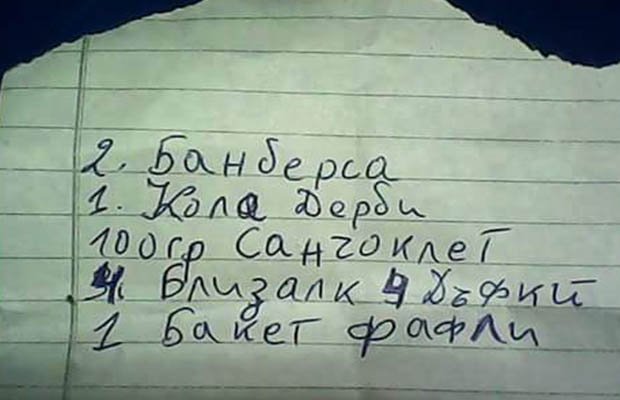 2. Банберса
1. Кола Дерби
100гр Сангоклет
4. Близалк 4 Дъфки
1 Бакет фафли